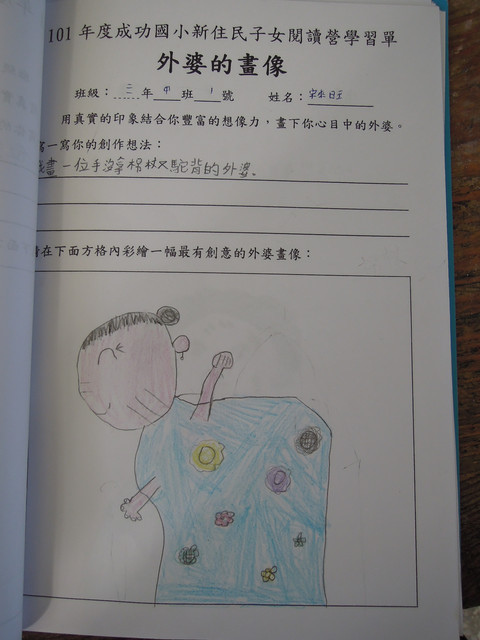 101 年度成功國小新住民子女閱讀營學習單
外婆的畫像
班級：三年甲班 1 號 姓名：
用真實的印象結合你豐富的想像力，畫下你心目中的外婆。
寫一寫你的創作想法：
我畫一位手拿柺杖又駝背的外婆。
請在下面方格內彩繪一幅最有創意的外婆畫像：